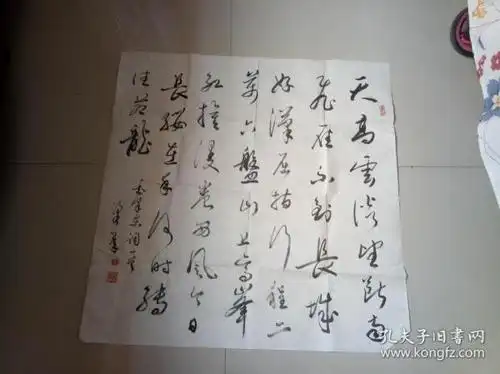 天高雲淡望斷南
飛雁不到長城
好漢屈指行程二
萬六盤山上高峰
紅旗漫卷西風今日
長纓在手何時縛
住蒼龍
毛澤東詞一首
孔夫子旧书网
www.kongfz.com